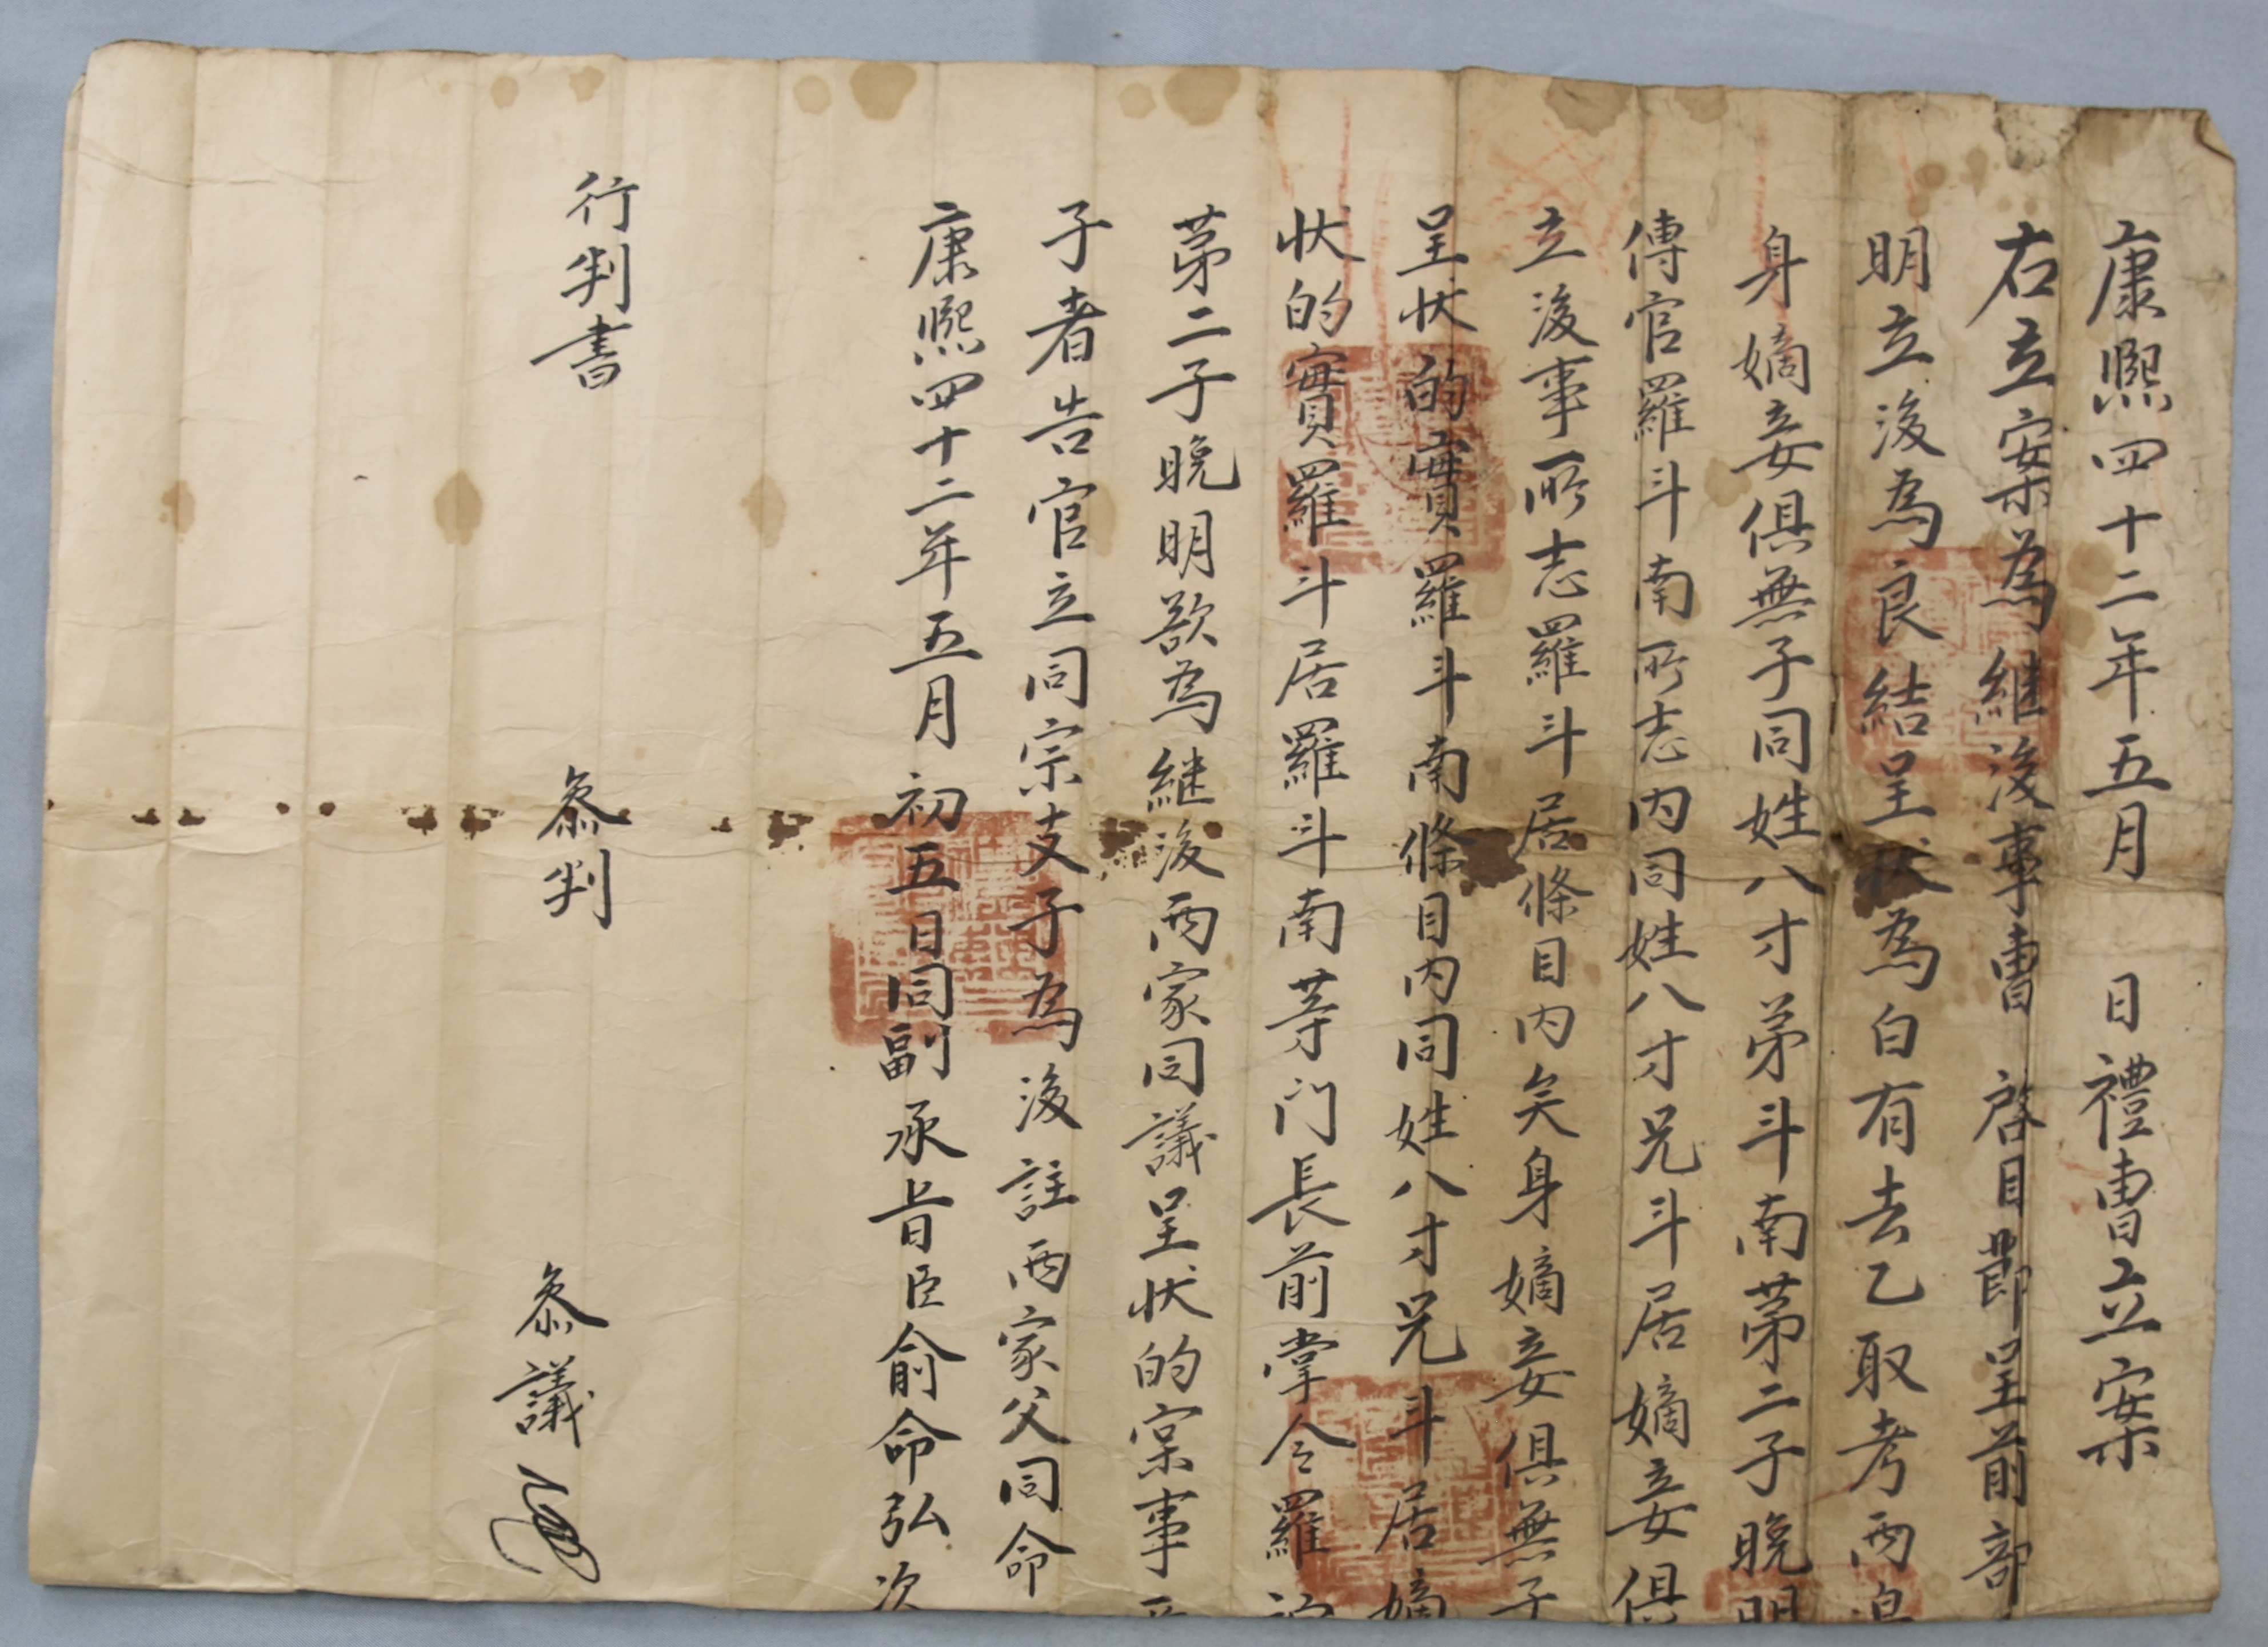 康熙四十二年五月　日禮曹立案
右立案為継後事曹啓目節呈前部
明立後為良結呈狀為白有去乙取考両
身嫡妾俱無子同姓八寸弟斗南苐二子晚明
傳官羅斗南所志内同姓八寸兄斗居嫡妾俱
立後事所志羅斗居條目内矣身嫡妾俱無子
呈狀的實羅斗南條目内同姓八寸兄斗居嫡
狀的實羅斗居羅斗南等門長前掌令羅
苐二子晚明欲為継後両家同議呈狀的実事
子者告官立同宗支子為後註両家父同命
康熙四十二年五月初五日同副承旨臣俞命弘次
行判書　參判　參議